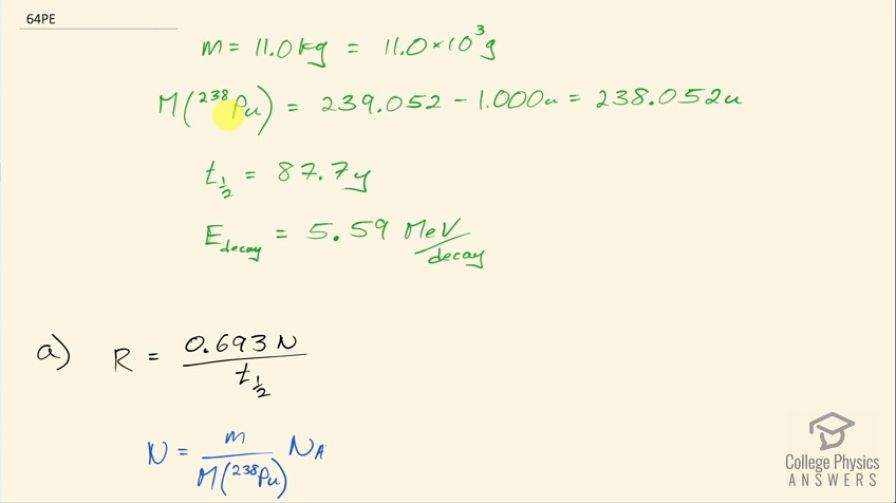 64PE
m = 11.0 kg = 11.0 × 10³ g
M(²³⁸Pu) = 239.052 − 1.000u = 238.052u
t_½ = 87.7y
E_decay = 5.59 MeV/decay
a) R = 0.693 N / t_½
N = m / M(²³⁸Pu) N_A
College Physics
ANSWERS